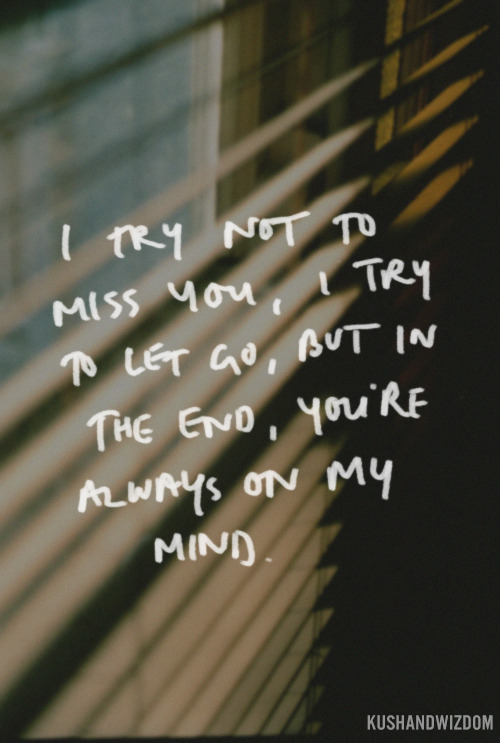 I TRY NOT TO
MISS YOU, I TRY
TO LET GO, BUT IN
THE END, YOU'RE
ALWAYS ON MY
MIND.
KUSHANDWIZDOM